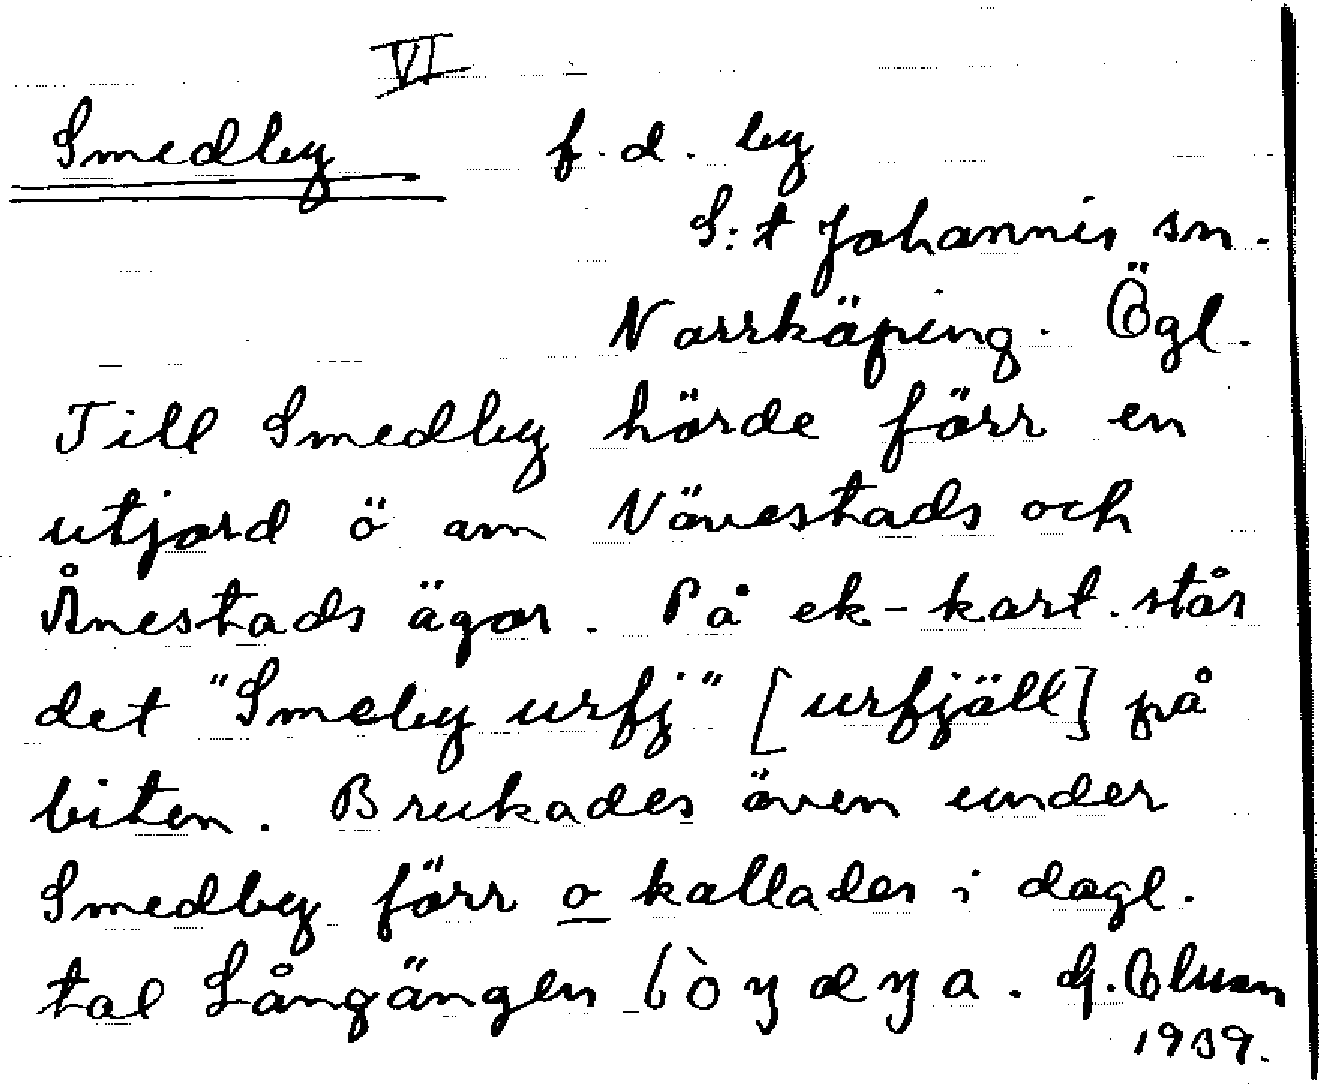 VI
Smedby f.d. by
S:t Johannis sn.
Norrköping. Ögl.
Till Smedby hörde förr en
utjord ö om Növestads och
Ånestads ägor. På ek-kart. står
det "Smeby urfj" [urfjäll] på
biten. Brukades även under
Smedby förr o kallades i dagl.
tal Långängen
1939.